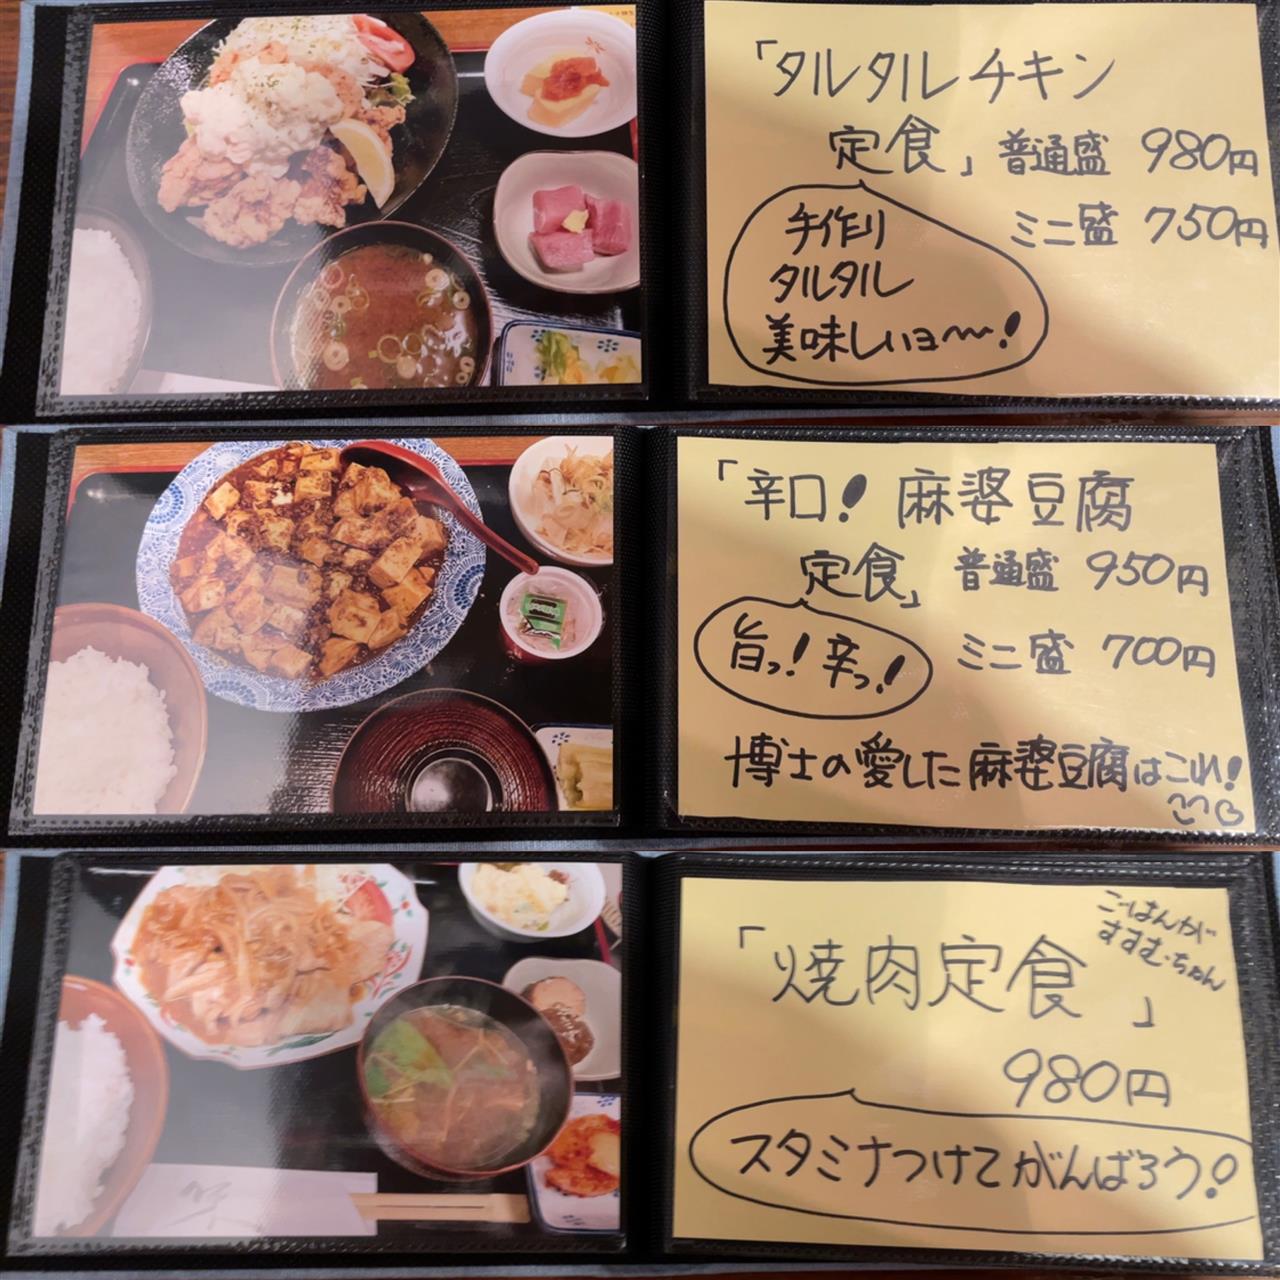 「タルタルチキン
定食」 普通盛 980円
ミニ盛 750円
手作り
タルタル
美味しいョ〜!
「辛口! 麻婆豆腐
定食」 普通盛 950円
ミニ盛 700円
旨っ! 辛っ!
博士の愛した麻婆豆腐はこれ!
ごはんが
すすむちゃん
「焼肉定食」
980円
スタミナつけてがんばろう!